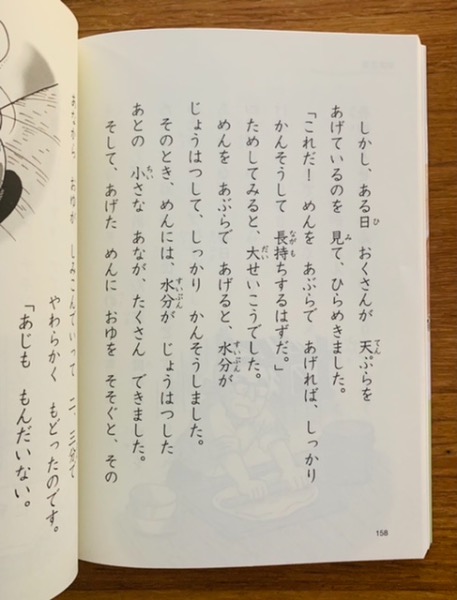 しかし、ある日 おくさんが 天ぷらを
あげているのを 見て、ひらめきました。
「これだ! めんを あぶらで あげれば、しっかり
かんそうして 長持ちするはずだ。」
ためしてみると、大せいこうでした。
めんを あぶらで あげると、水分が
じょうはつして、しっかり かんそうしました。
そのとき、めんには、水分が じょうはつした
あとの 小さな あなが、たくさん できました。
そして、あげた めんに おゆを そそぐと、その
あなから おゆが しみこんでいって 二、三分で
やわらかく もどったのです。
「あじも もんだいない。
158